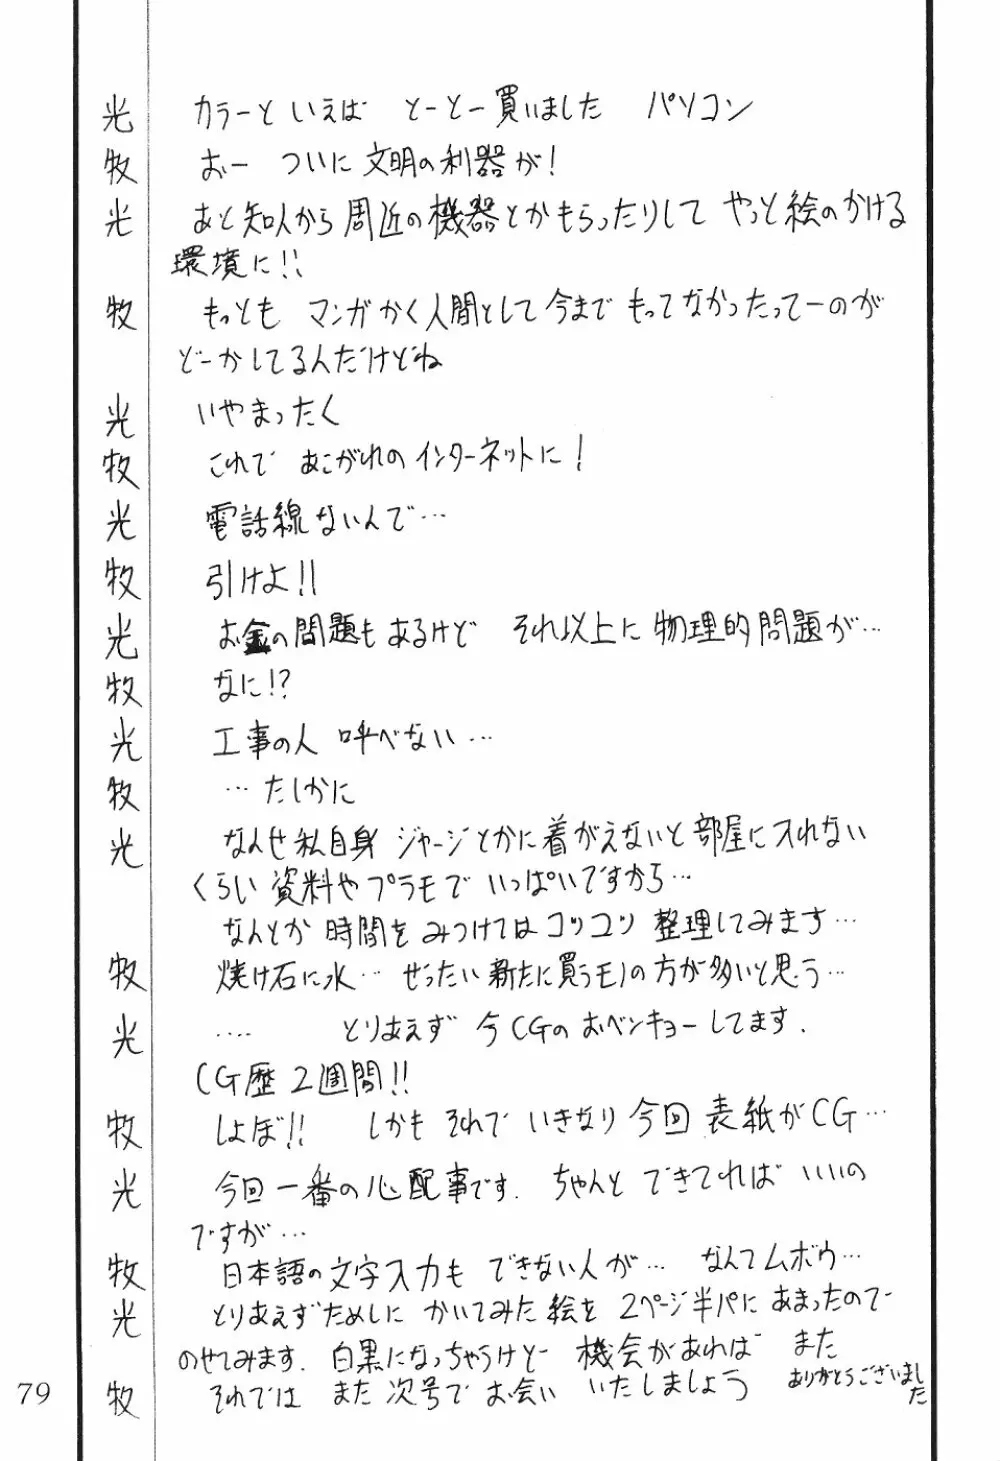 光 カラーと いえば とーとー買いました パソコン
牧 おー ついに 文明の利器が!
光 あと知人から周辺の機器とかもらったりして やっと絵のかける
環境に!!
牧 もっとも マンガかく人間として今まで もってなかったってーのが
どーかしてるんだけどね
光 いやまったく
牧 これで あこがれのインターネットに!
光 電話線ないんで…
牧 引けよ!!
光 お金の問題もあるけど それ以上に物理的問題が…
牧 なに!?
光 工事の人 呼べない…
牧 …たしかに
光 なんせ私自身 ジャージとかに着がえないと部屋に入れない
くらい資料やプラモで いっぱいですから…
なんとか時間をみつけてはコツコツ 整理してみます…
牧 焼け石に水… ぜったい新たに買うモノの方が多いと思う…
光 …. とりあえず 今CGのおベンキョーしてます.
CG歴2週間!!
牧 しょぼ!! しかも それで いきなり 今回 表紙がCG…
光 今回一番の心配事です. ちゃんと できてれば いいの
ですが…
牧 日本語の文字入力も できない人が… なんてムボウ…
光 とりあえずためしに かいてみた絵を 2ページ半パにあまったので
のせてみます. 白黒になっちゃうけどー 機会があれば また
牧 それでは また 次号で お会い いたしましょう ありがとうございまし
た
79